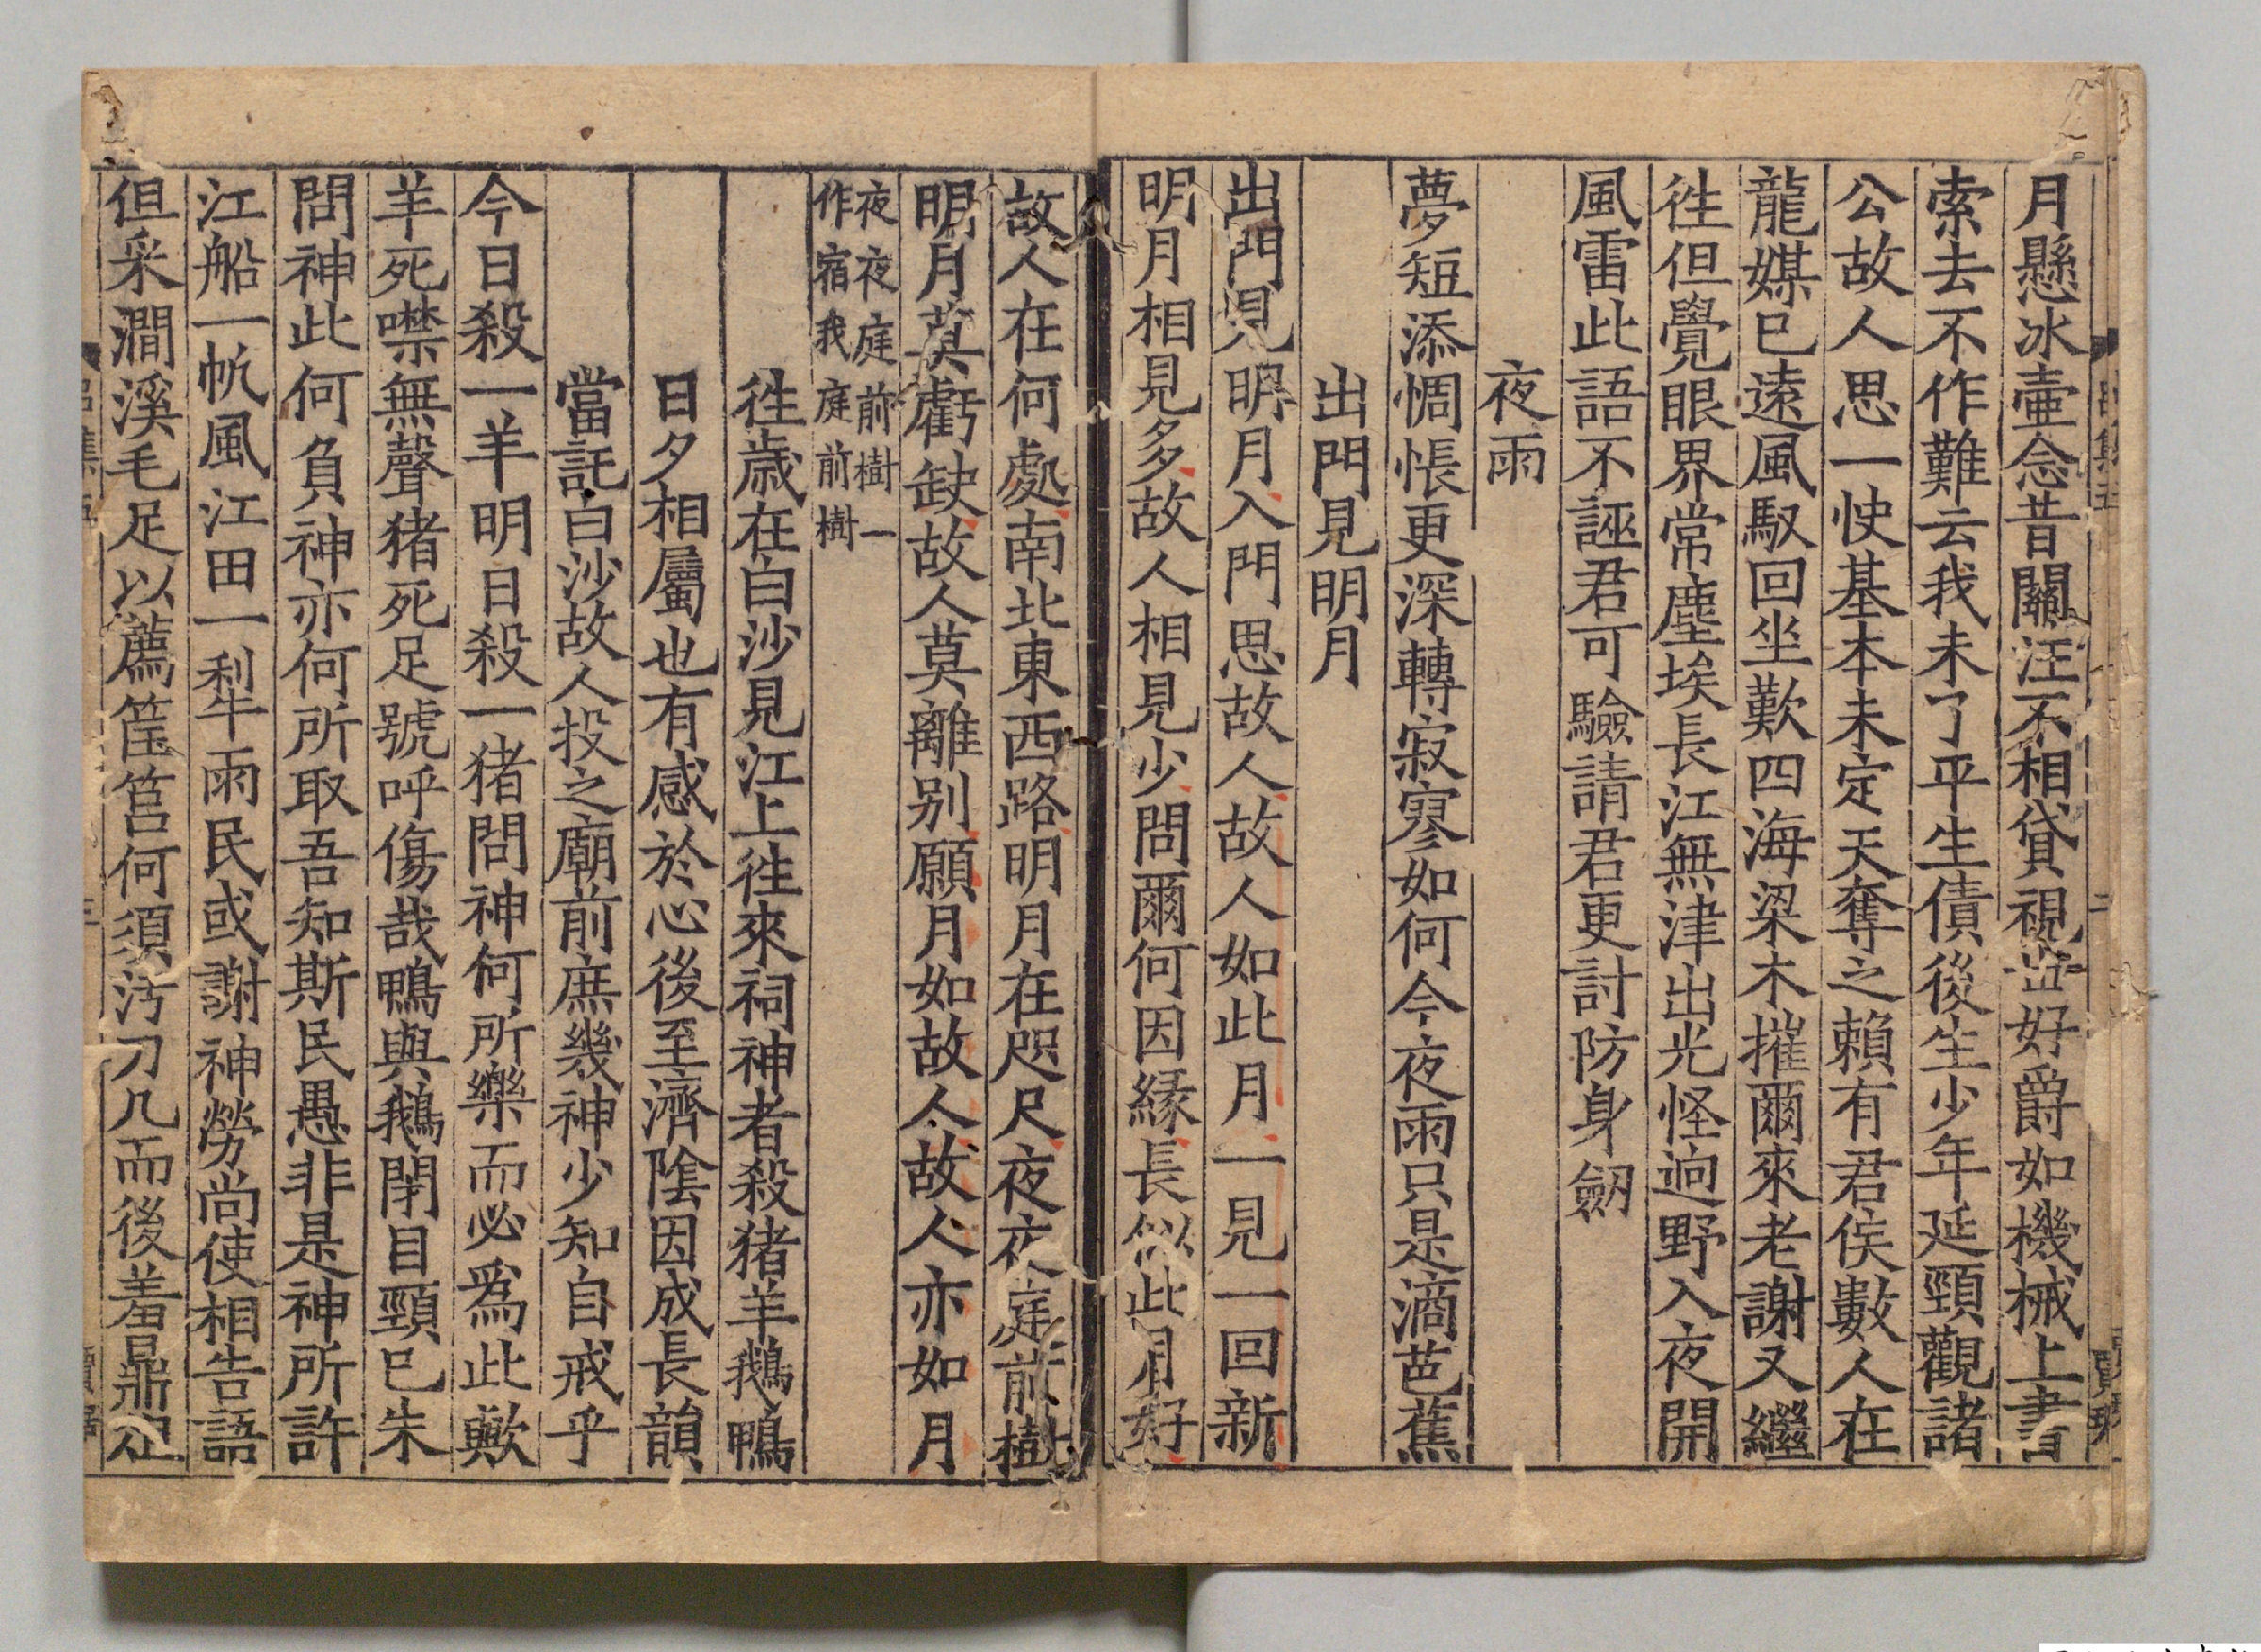 月懸冰壷念昔關汪不相貸視並好爵如機械上書
索去不作難云我未了平生債後生少年延頸觀諸
公故人思一快基本未定天奪之賴有君侯數人在
龍媒已遠風馭回坐歎四海梁木摧爾來老謝又繼
徃但覺眼界常塵埃長江無津出光怪逈野入夜開
風雷此語不誣君可驗請君更討防身劒
夜雨
夢短添惆悵更深轉寂寥如何今夜雨只是滴芭蕉
出門見明月
出門見明月入門思故人故人如此月一見一回新
明月相見多故人相見少問爾何因縁長似此月好
故人在何處南北東西路明月在咫尺夜夜庭前樹
明月莫虧缺故人莫離别願月如故人故人亦如月
夜夜庭前樹一
作宿我庭前樹
徃歳在白沙見江上徃來祠神者殺猪羊鵝鴨
日夕相屬也有感於心後至濟隂因成長韻
當託白沙故人投之廟前庶幾神少知自戒乎
今日殺一羊明日殺一猪問神何所樂而必爲此歟
羊死噤無聲猪死足號呼傷哉鴨與鵝閉目頸已朱
問神此何負神亦何所取吾知斯民愚非是神所許
江船一帆風江田一犁雨民或謝神勞尚使相告語
但采澗溪毛足以薦筐筥何須汚刀几而後羞鼎俎